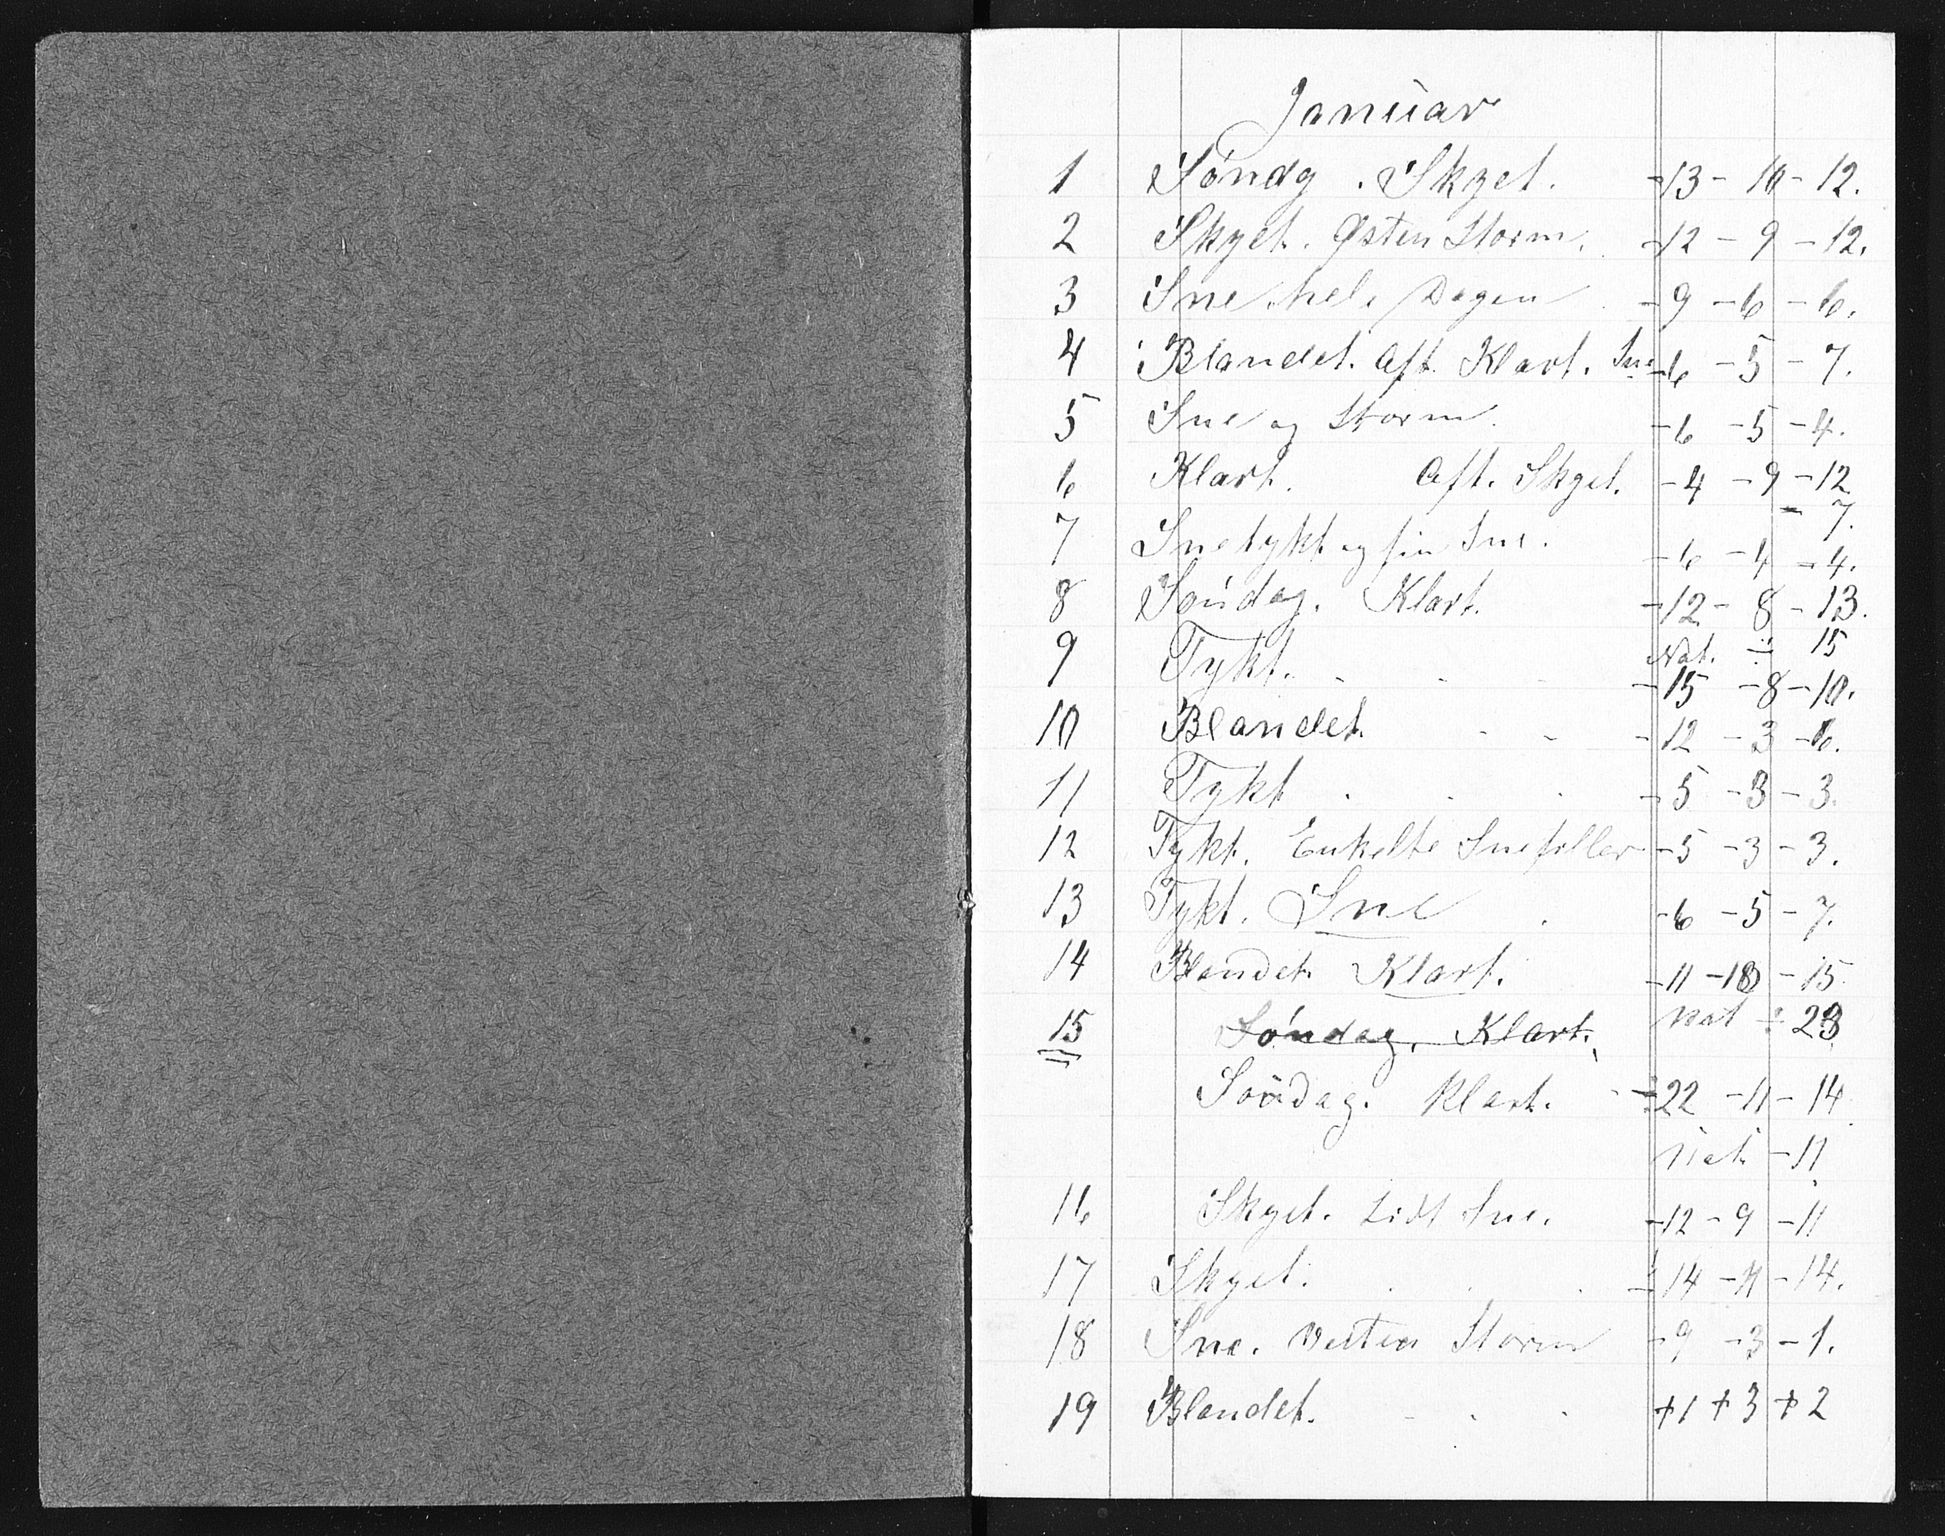 Januar
1 Søndg. Skyet. -13 - 10 - 12.
2 Skyet. Østen Storm. -12 - 9 - 12.
3 Sne hele Dagen -9 -6 -6.
4 Blandet. Aft. Klart. Sne -6 -5 -7.
5 Sne og Storm. -6 -5 -4.
6 Klart. Aft. Skyet. -4 -9 -12
- 7.
7 Snetykt og fin Sne. -6 -4 -4.
8 Søndag. Klart. -12 - 8 - 13.
Nat. ÷ 15
9 Tykt. -15 -8 -10.
10 Blandet. -12 -3 -6.
11 Tykt -5 -3 -3.
12 Tykt. Enkelte Snefiller -5 -3 -3.
13 Tykt. Sne -6 -5 -7.
14 Blandet Klart. -11 -10 -15
Nat ÷ 23
15 Søndag. Klart.
Søndag. Klart. ÷22 -11 -14
Nat -11
16 Skyet. Lidt Sne. -12 -9 -11
17 Skyet. -14 -11 -14.
18 Sne. Vesten Storm -9 -3 -1.
19 Blandet. +1 +3 +2